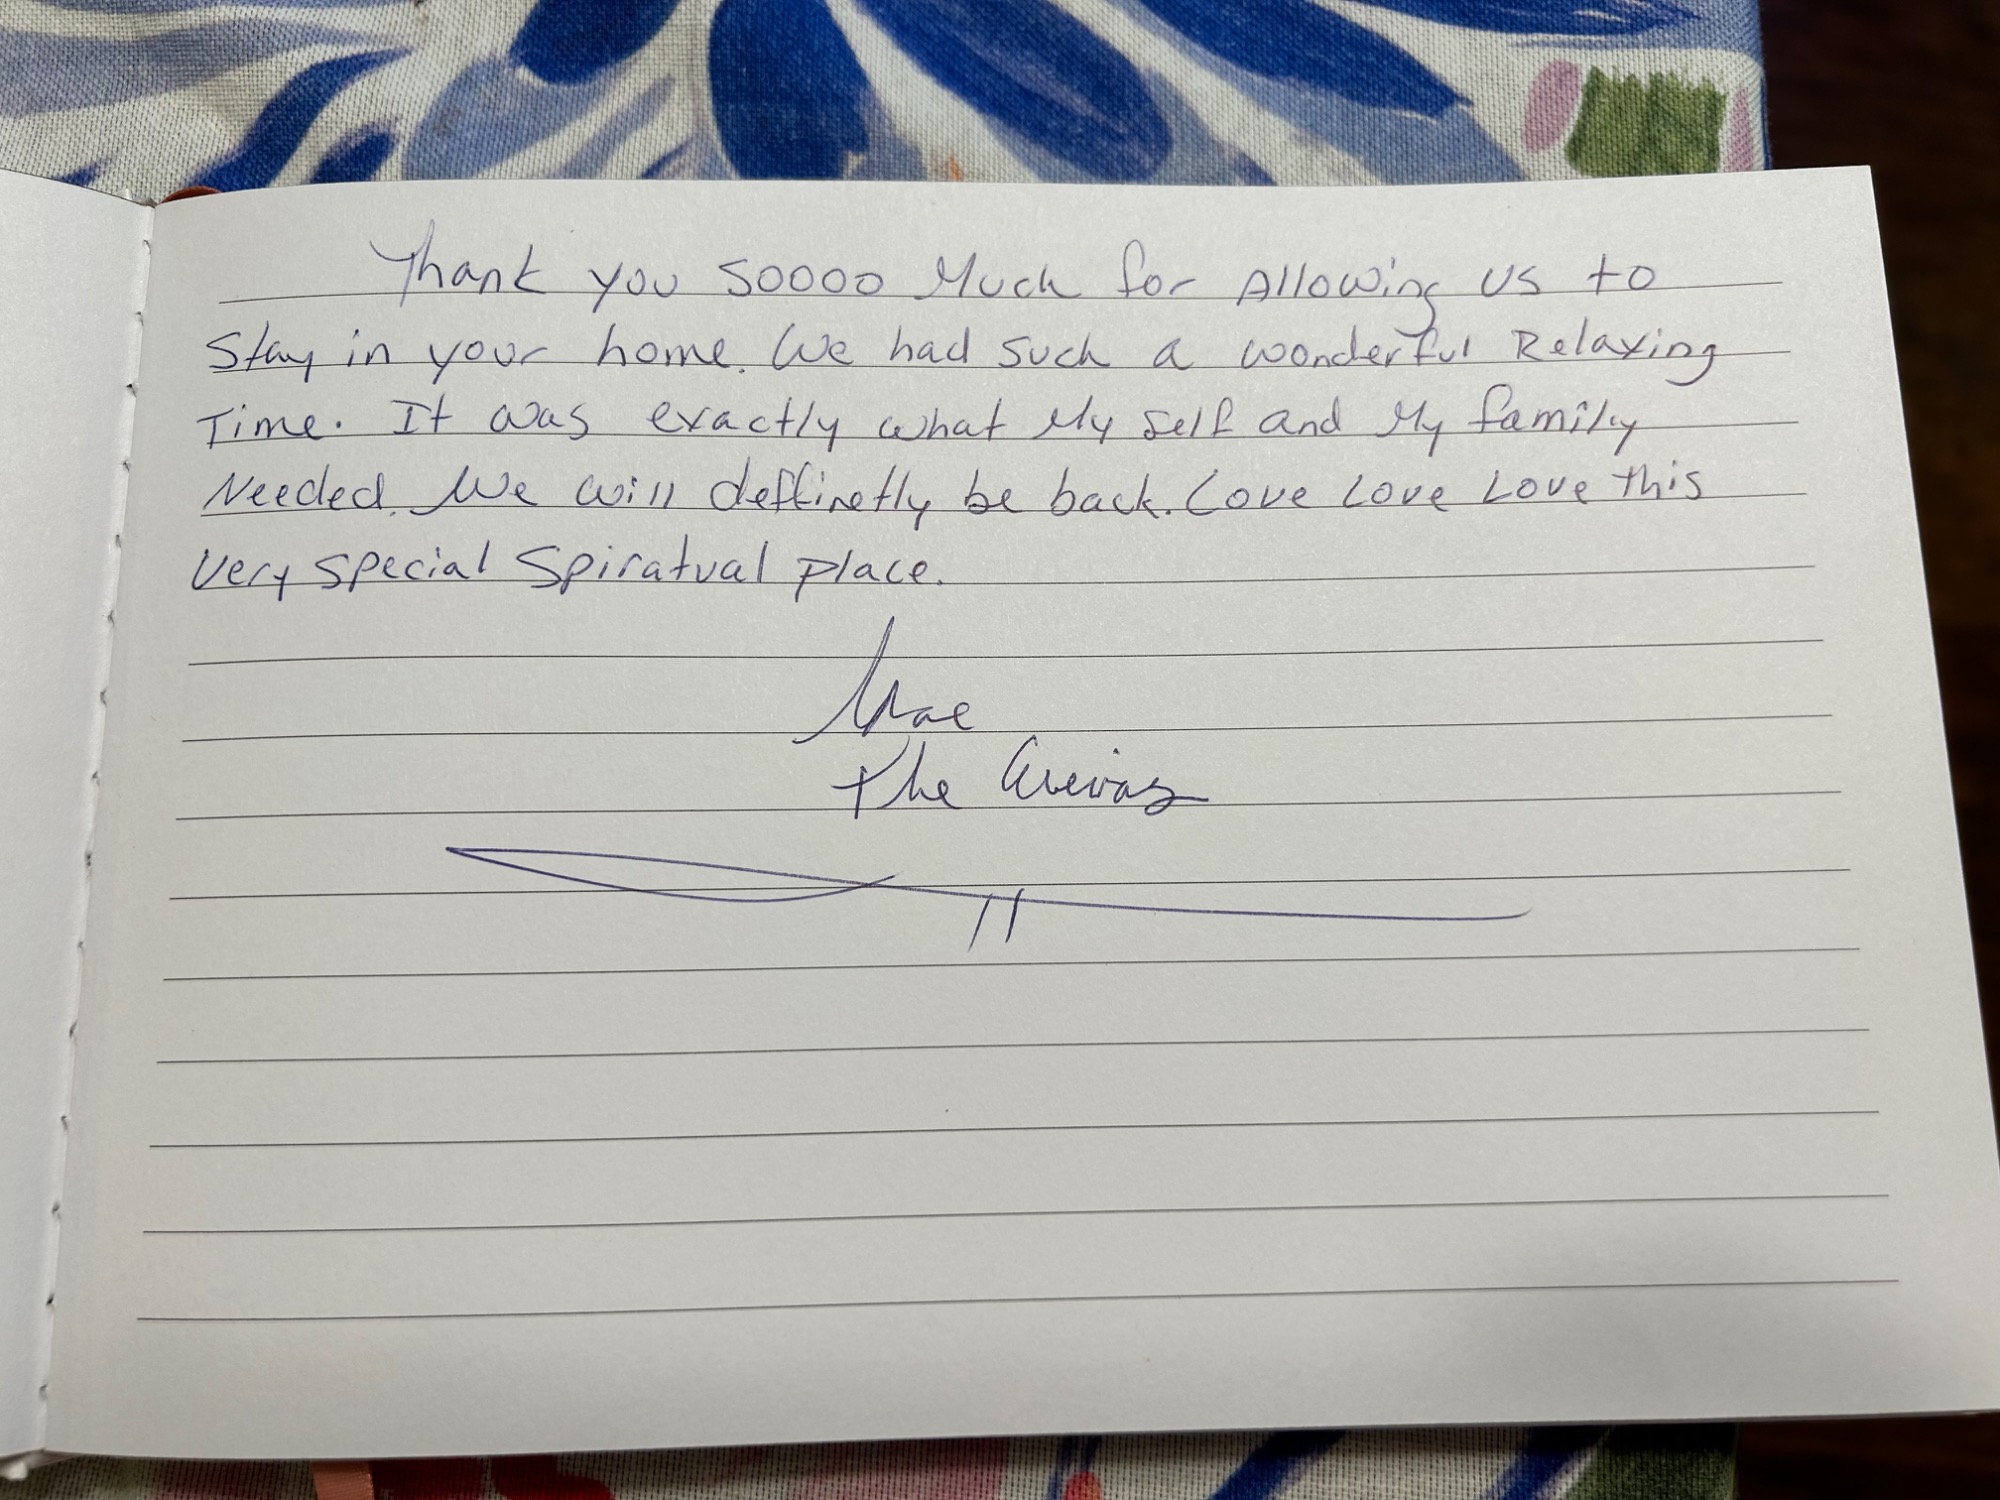 Thank you Soooo Much for Allowing us to
Stay in your home. We had such a wonderful Relaxing
Time. It was exactly what My self and My family
Needed. We will deffinetly be back. Love Love Love This
Very special Spiratual place.
The